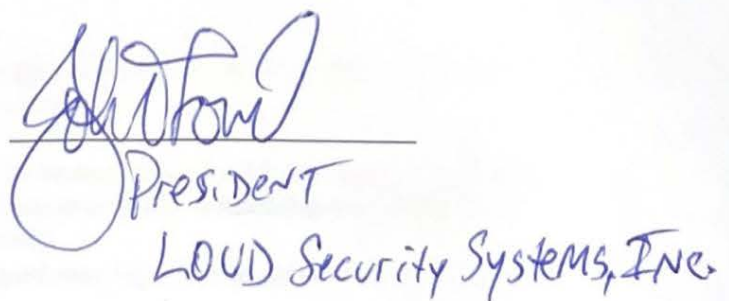 John
President
LOUD Security Systems, Inc.